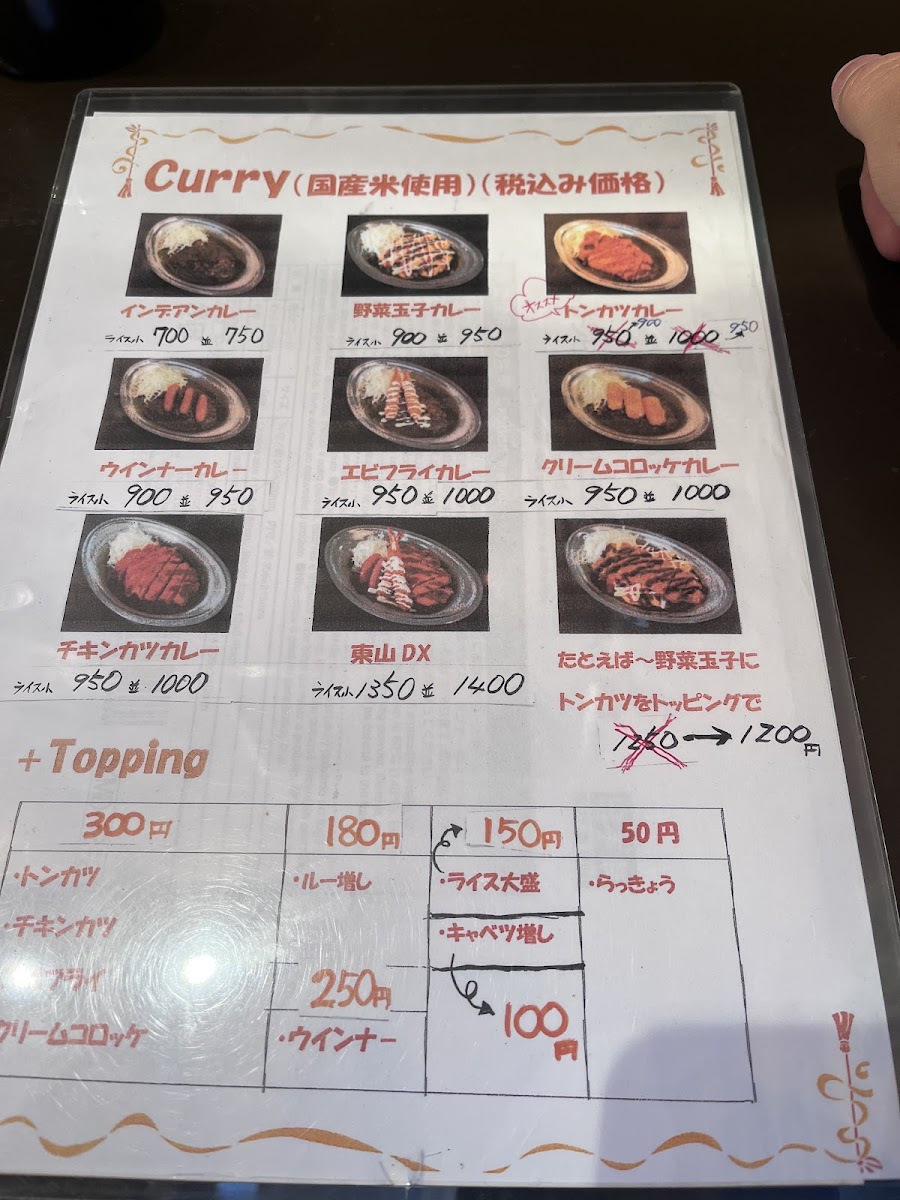 Curry(国産米使用)(税込み価格)
インデアンカレー
ライス小 700 並 750
野菜玉子カレー
ライス小 900 並 950
オススメ
トンカツカレー
ライス小 950 900 並 1000 950
ウインナーカレー
ライス小 900 並 950
エビフライカレー
ライス小 950 並 1000
クリームコロッケカレー
ライス小 950 並 1000
チキンカツカレー
ライス小 950 並 1000
東山DX
ライス小 1350 並 1400
たとえば~野菜玉子に
トンカツをトッピングで
1250→1200円
+Topping
300円
・トンカツ
・チキンカツ
フライ
クリームコロッケ
180円
・ルー増し
250円
・ウインナー
150円
・ライス大盛
・キャベツ増し
100円
50円
・らっきょう